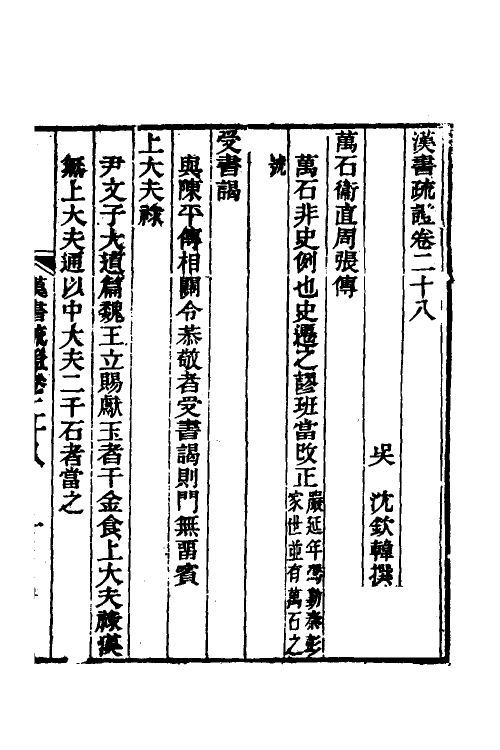 漢書疏證卷二十八
吳 沈欽韓撰
萬石衛直周張傳
萬石非史例也史遷之謬班當改正嚴延年馮勤秦彭家世並有萬石之
號
受書謁
與陳平傳相關令恭敬者受書謁則門無留賓
上大夫祿
尹文子大道篇魏王立賜獻玉者千金食上大夫祿漢
無上大夫通以中大夫二千石者當之
漢書疏證卷二十八 一